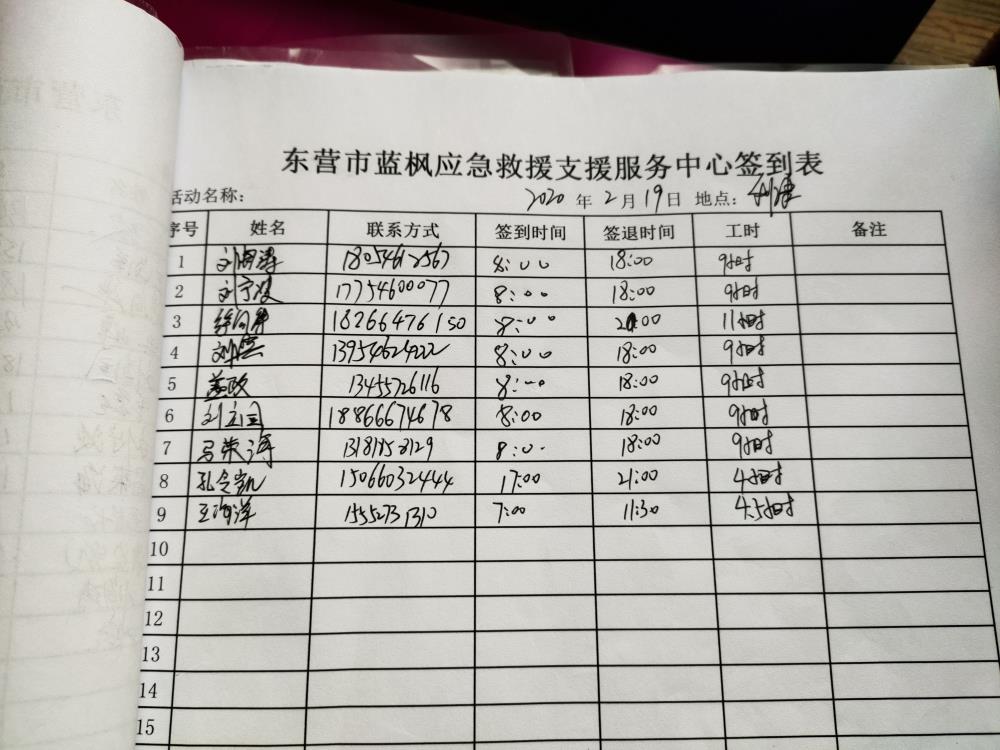 东营市蓝枫应急救援支援服务中心签到表
活动名称： 2020 年 2 月 19 日 地点：利津
序号 姓名 联系方式 签到时间 签退时间 工时 备注
1 18054612567 8:00 18:00 9小时
2 17754600077 8:00 18:00 9小时
3 18266476150 8:00 11小时
4 刘 13954624222 8:00 18:00 9小时
5 盖政 13455726116 8:00 18:00 9小时
6 刘立国 18866674678 8:00 18:00 9小时
7 马荣涛 8:00 18:00 9小时
8 孔令凯 15066032444 17:00 21:00 4小时
9 王海洋 1552731310 7:00 11:30 4.5小时
10
11
12
13
14
15